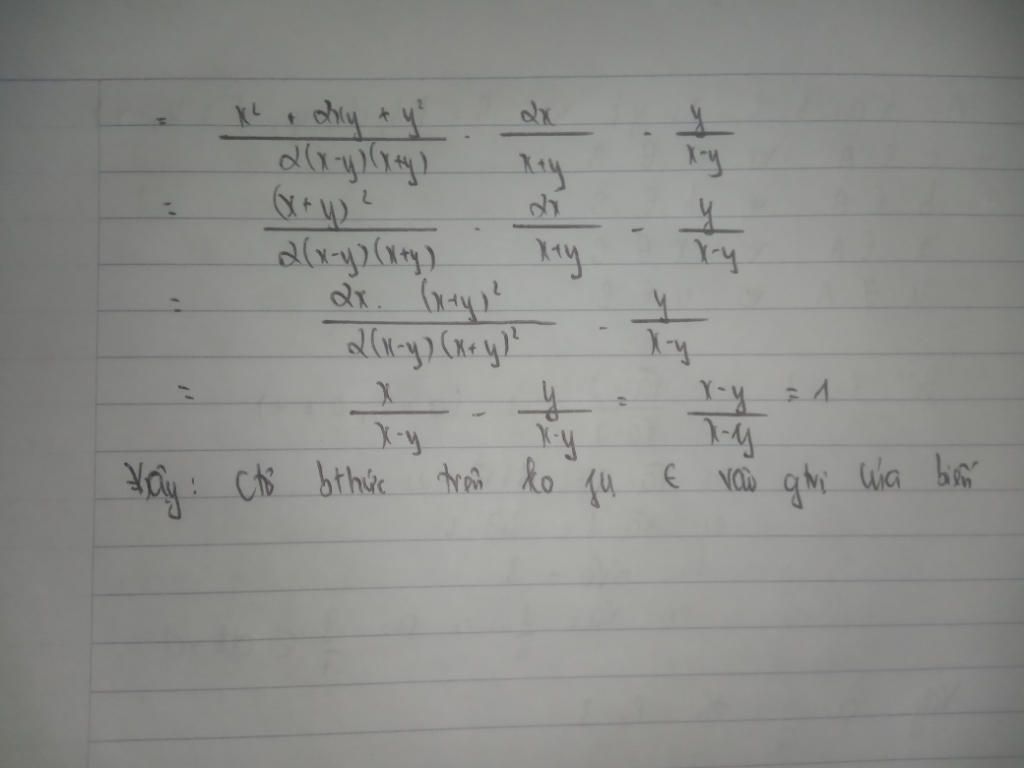 = x² + 2xy + y² / 2(x-y)(x+y) · 2x / x+y - y / x-y
= (x+y)² / 2(x-y)(x+y) · 2x / x+y - y / x-y
= 2x. (x+y)² / 2(x-y)(x+y)² - y / x-y
= x / x-y - y / x-y = x-y / x-y = 1
Vậy: Ctỏ bthức trên ko fụ ∈ vào gtrị của biến